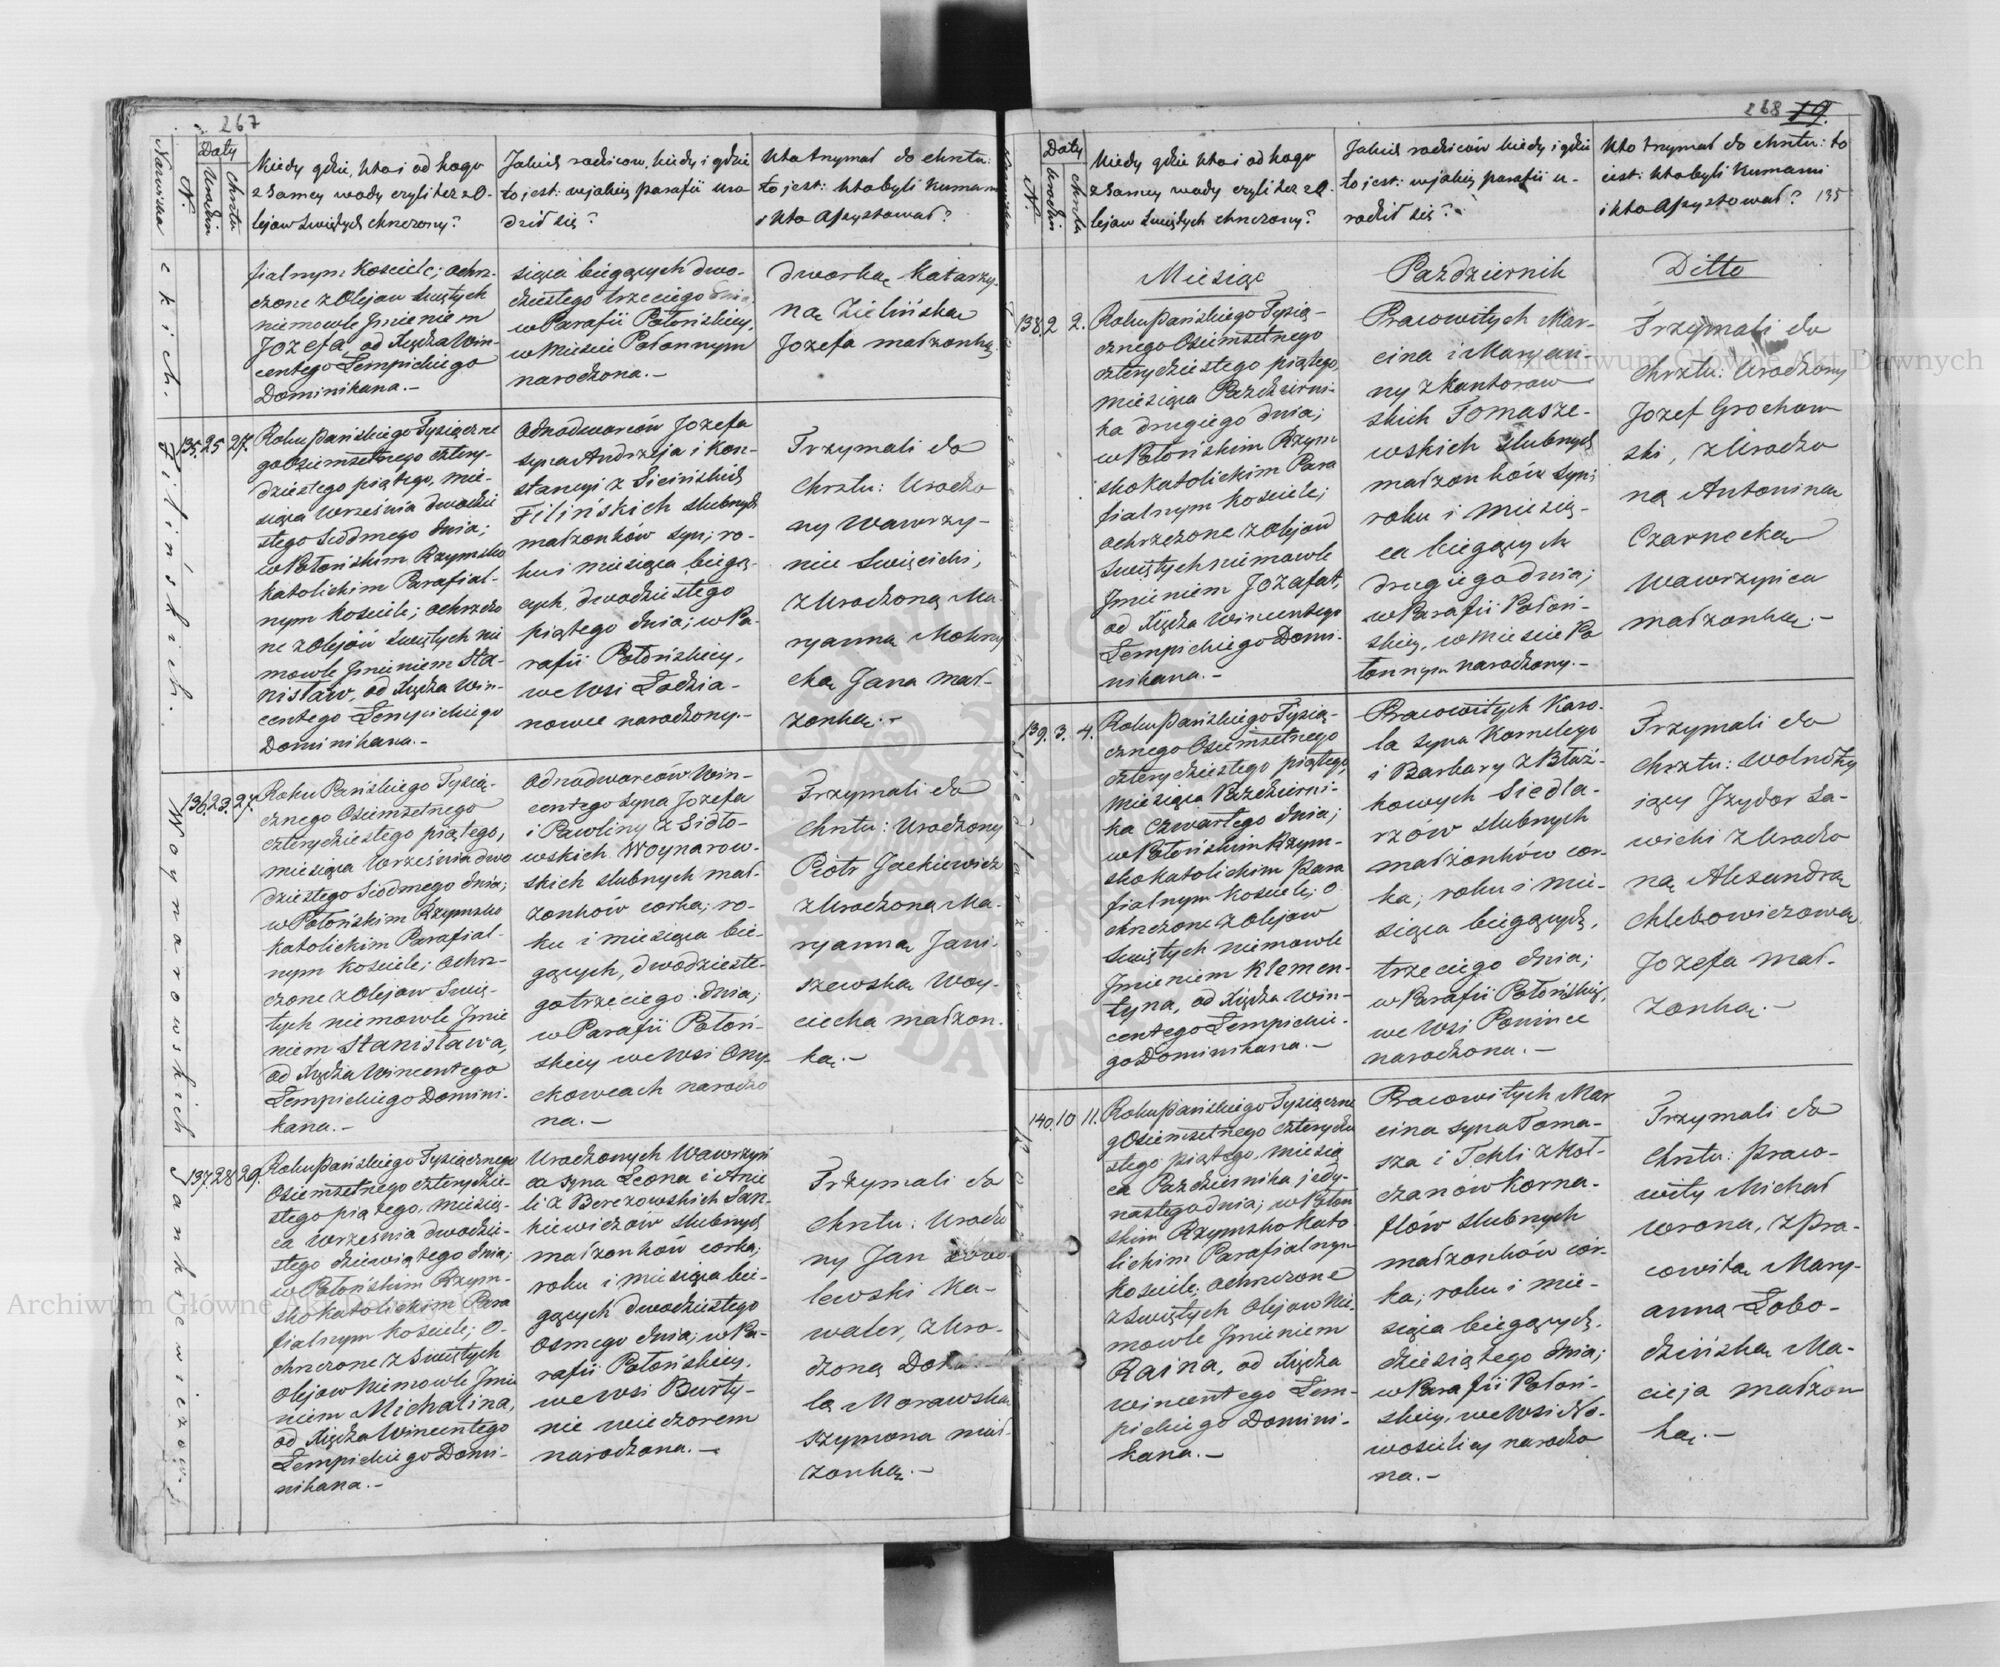 267
Nazwiska
N.
Daty
Urodzin
chrztu
Kiedy gdzie, kto i od kogo
z samey wody czyli też z O-
lejow Swiętych chrzczony?
Jakich rodzicow, kiedy i gdzie
to jest: w jakiey parafii uro
dził się?
Kto trzymał do chrztu:
to jest: kto byli Kumami
i kto Assystował?
fialnym Kosciele; ochrz-
czone z Olejow Swiętych
niemowle Jmieniem
Jozefa od Xiędza Win-
centego Lempickiego
Dominikana. -
siąca bieżących dwo-
dziestego trzeciego dnia,
w Parafii Połońskiey,
w Miescie Połonnym
narodzona. -
dworką Katarzy-
ną Zielińską
Jozefa małżonką.
Filińskich.
135. 25 27.
Roku Pańskiego Tysiączne
go Osiemsetnego cztery-
dziestego piątego, mie-
siąca Września dwodzie
stego Siodmego dnia;
w Połońskim Rzymsko
katolickim Parafial-
nym Kosciele; ochrzczo
ne z Olejów Swiętych nie
mowle Jmieniem Sta-
nisław, od Xiędza Win-
centego Lempickiego
Dominikana. -
Odnodworców Jozefa
syna Andrzeja i Kon-
stancyi z Sicińskich
Filińskich slubnych
małżonków syn; ro-
ku i miesiąca bieżą-
cych, dwodziestego
piątego dnia; w Pa-
rafii Połońskiey,
we Wsi Łodzia-
nowce narodzony. -
Trzymali do
chrztu: Urodzo
ny Wawrzy-
niec Swięcicki,
z Urodzoną Ma-
ryanną Mokrzy
cką Jana mał-
żonką. -
Woynarowskich
136. 23. 27.
Roku Pańskiego Tysią-
cznego Osiemsetnego
czterydziestego piątego,
miesiąca Września dwo
dziestego Siodmego dnia;
w Połońskim Rzymsko
katolickim Parafial-
nym Kosciele; ochrz-
czone z Olejow Swię-
tych niemowle Jmie
niem Stanisława,
od Xiędza Wincentego
Lempickiego Domini-
kana. -
Odnodworców Win-
centego syna Jozefa
i Pawliny z Sidło-
wskich Woynarow-
skich slubnych mał-
żonków corka; ro-
ku i miesiąca bie-
żących, dwodzieste-
go trzeciego dnia;
w Parafii Połoń-
skiey we Wsi Onyc-
kowcach narodzo
na. -
Trzymali do
chrztu: Urodzony
Piotr Jackiewicz
z Urodzoną Ma-
ryanną Jani-
szewską Woy-
ciecha małżon-
ką. -
Jankiewiczow.
137. 28 29.
Roku Pańskiego Tysiącznego
Osiemsetnego czterydzie-
stego piątego, miesią-
ca Września dwodzie-
stego dziewiątego dnia;
w Połońskim Rzym-
sko katolickim Para
fialnym Kosciele; o-
chrzczone z Swiętych
Olejow Niemowle Jmie
niem Michalina,
od Xiędza Wincentego
Lempickiego Domi-
nikana. -
Urodzonych Wawrzyń
ca syna Leona i Anie
li z Berezowskich Jan-
kiewiczów slubnych
małżonków corka;
roku i miesiąca bie-
żących dwodziestego
osmego dnia; w Pa-
rafii Połońskiey,
we Wsi Burty-
nie wieczorem
narodzona. -
Trzymali do
chrztu: Urodzo
ny Jan
lewski Ka-
waler, z Uro-
dzoną
lą Morawską
Szymona mał-
żonką. -
268 19.
N.
Daty
Urodzin
chrztu
Kiedy gdzie, kto i od kogo
z samey wody czyli też z O-
lejow Swiętych chrzczony?
Jakich rodziców kiedy i gdzie
to jest: w jakiey parafii u-
rodził się?
Kto trzymał do chrztu: to
iest: kto byli Kumami
i kto Assystował? 135
Miesiąc Pazdziernik Ditto
Tomaszewskich
138 2 2.
Roku Pańskiego Tysią-
cznego Osiemsetnego
czterydziestego piątego,
miesiąca Pazdzierni-
ka drugiego dnia;
w Połońskim Rzym
sko katolickim Para
fialnym Kosciele;
ochrzczone z Olejow
Swiętych niemowle
Jmieniem Jozafat,
od Xiędza Wincentego
Lempickiego Domi-
nikana. -
Pracowitych Mar-
cina i Maryan-
ny z Kantorow
skich Tomasze-
wskich slubnych
małżonków syn;
roku i miesią-
ca bieżących
drugiego dnia;
w Parafii Połoń-
skiey, w Miescie Po
łonnym narodzony. -
Trzymali do
chrztu: Urodzony
Jozef Grochow
ski, z Urodzo
ną Antoniną
Czarnecką
Wawrzyńca
małżonką. -
Siedlarzow
139. 3. 4.
Roku Pańskiego Tysią-
cznego Osiemsetnego
czterydziestego piątego,
miesiąca Pazdzierni-
ka czwartego dnia;
w Połońskim Rzym-
sko katolickim Para
fialnym Kosciele; o
chrzczone z Olejow
Swiętych niemowle
Jmieniem Klemen-
tyna, od Xiędza Win-
centego Lempickie-
go Dominikana. -
Pracowitych Karo-
la syna Kornelego
i Barbary z Błaż-
kowych Siedla-
rzów slubnych
małżonków cor-
ka; roku i mie-
siąca bieżących,
trzeciego dnia;
w Parafii Połońskiey,
we Wsi Ponince
narodzona. -
Trzymali do
chrztu: Wolnoży
iący Jzydor Sa-
wicki z Urodzo
ną Alexandrą
Chlebowiczową
Jozefa mał-
żonką. -
140. 10 11.
Roku Pańskiego Tysiączne
go Osiemsetnego czterydzie
stego piątego, miesią
ca Pazdziernika jedy-
nastego dnia; w Połoń
skim Rzymsko kato
lickim Parafialnym
Kosciele; ochrzczone
z Swiętych Olejow Nie-
mowle Jmieniem
Raina, od Xiędza
Wincentego Lem-
pickiego Domini-
kana. -
Pracowitych Mar
cina syna Toma-
sza i Tekli z Koł-
czanów Korna-
flów slubnych
małżonków cór-
ka; roku i mie-
siąca bieżących,
dziesiątego dnia;
w Parafii Połoń-
skiey, we Wsi No-
wosielicy narodzo
na. -
Trzymali do
chrztu: Praco-
wity Michał
Wrona, z Pra-
cowitą Mary-
anną Łobo-
dzińską Ma-
cieja małżon
ką. -
Archiwum Główne Akt Dawnych
Archiwum Główne Akt Dawnych